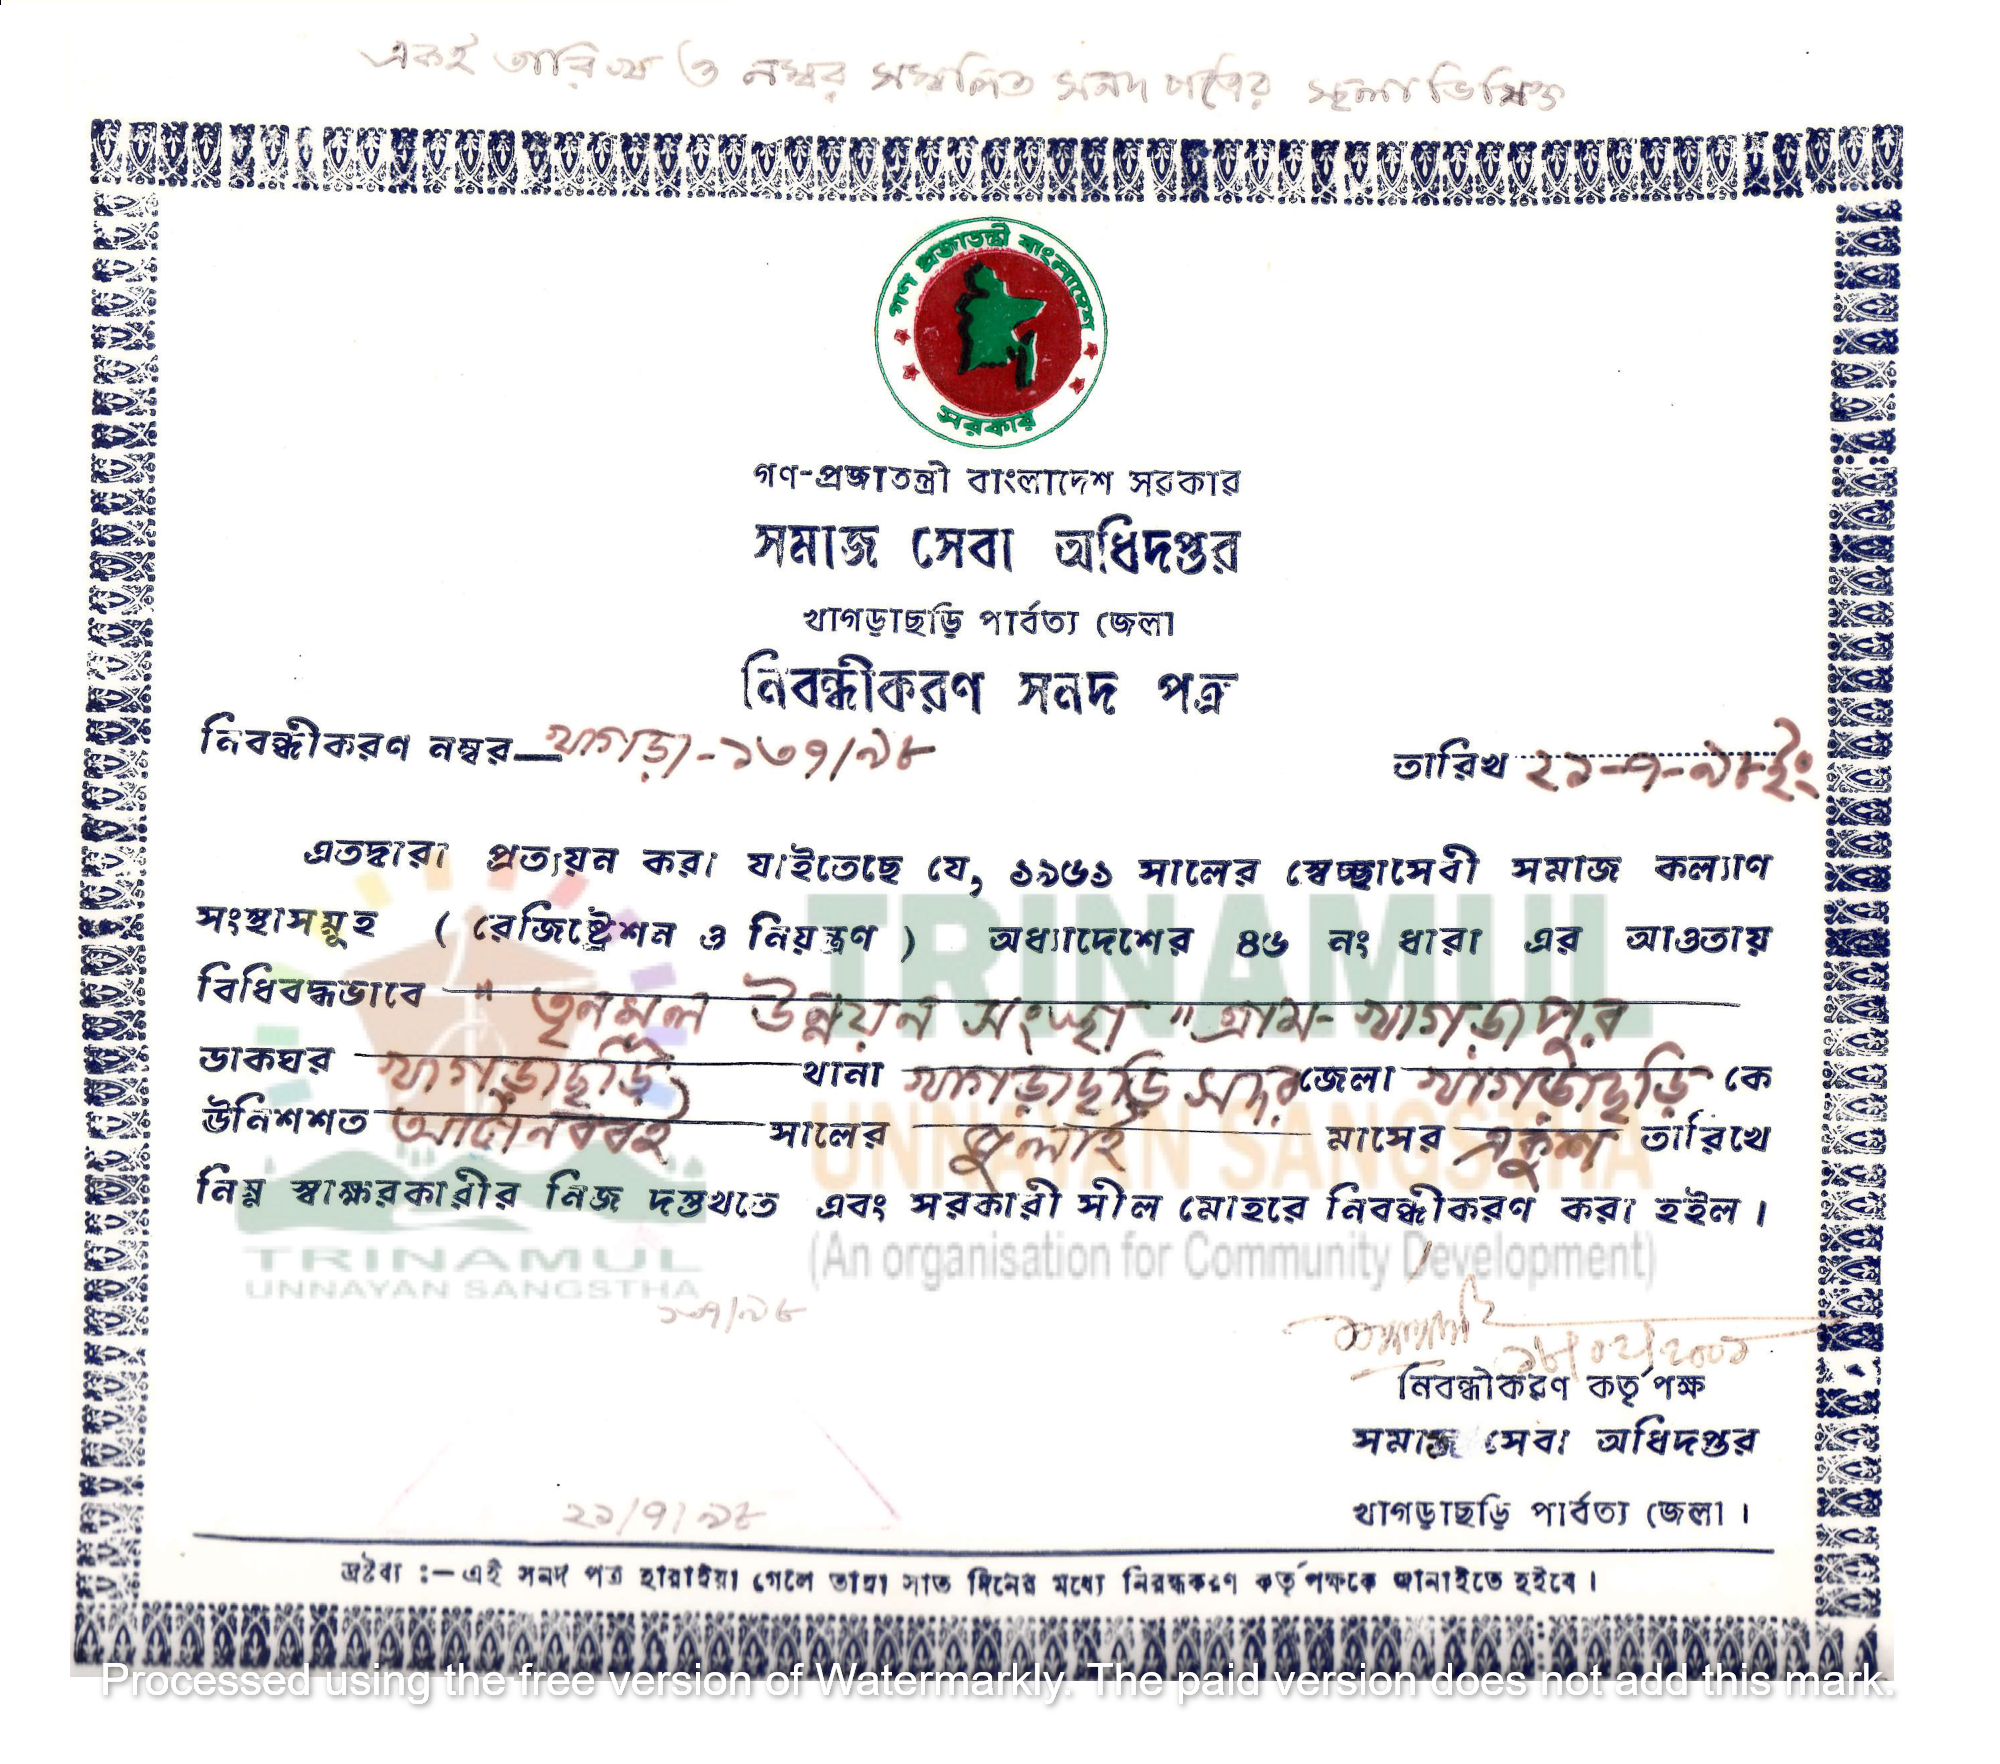 একই তারিখ ও নম্বর সম্বলিত সনদ পত্রের স্থলাভিষিক্ত
গণ প্রজাতন্ত্রী বাংলাদেশ
সরকার
গণ-প্রজাতন্ত্রী বাংলাদেশ সরকার
সমাজ সেবা অধিদপ্তর
খাগড়াছড়ি পার্বত্য জেলা
নিবন্ধীকরণ সনদ পত্র
নিবন্ধীকরণ নম্বর— খাগড়া-১৩৭/৯৮ তারিখ ২১-৭-৯৮ইং
এতদ্বারা প্রত্যয়ন করা যাইতেছে যে, ১৯৬১ সালের স্বেচ্ছাসেবী সমাজ কল্যাণ
সংস্থাসমূহ ( রেজিষ্ট্রেশন ও নিয়ন্ত্রণ ) অধ্যাদেশের ৪৬ নং ধারা এর আওতায়
বিধিবদ্ধভাবে " তৃনমূল উন্নয়ন সংস্থা " গ্রাম- খাগড়াপুর
ডাকঘর খাগড়াছড়ি থানা খাগড়াছড়ি সদর জেলা খাগড়াছড়ি কে
উনিশশত আটানব্বই সালের জুলাই মাসের একুশ তারিখে
নিম্ন স্বাক্ষরকারীর নিজ দস্তখতে এবং সরকারী সীল মোহরে নিবন্ধীকরণ করা হইল।
TRINAMUL
UNNAYAN SANGSTHA
(An organisation for Community Development)
TRINAMUL
UNNAYAN SANGSTHA
১৩৭/৯৮
১৮/০২/২০০১
নিবন্ধীকরণ কর্তৃপক্ষ
সমাজ সেবা অধিদপ্তর
খাগড়াছড়ি পার্বত্য জেলা।
২১/৭/৯৮
দ্রষ্টব্য :— এই সনদ পত্র হারাইয়া গেলে তাহা সাত দিনের মধ্যে নিবন্ধকরণ কর্তৃপক্ষকে জানাইতে হইবে।
Processed using the free version of Watermarkly. The paid version does not add this mark.